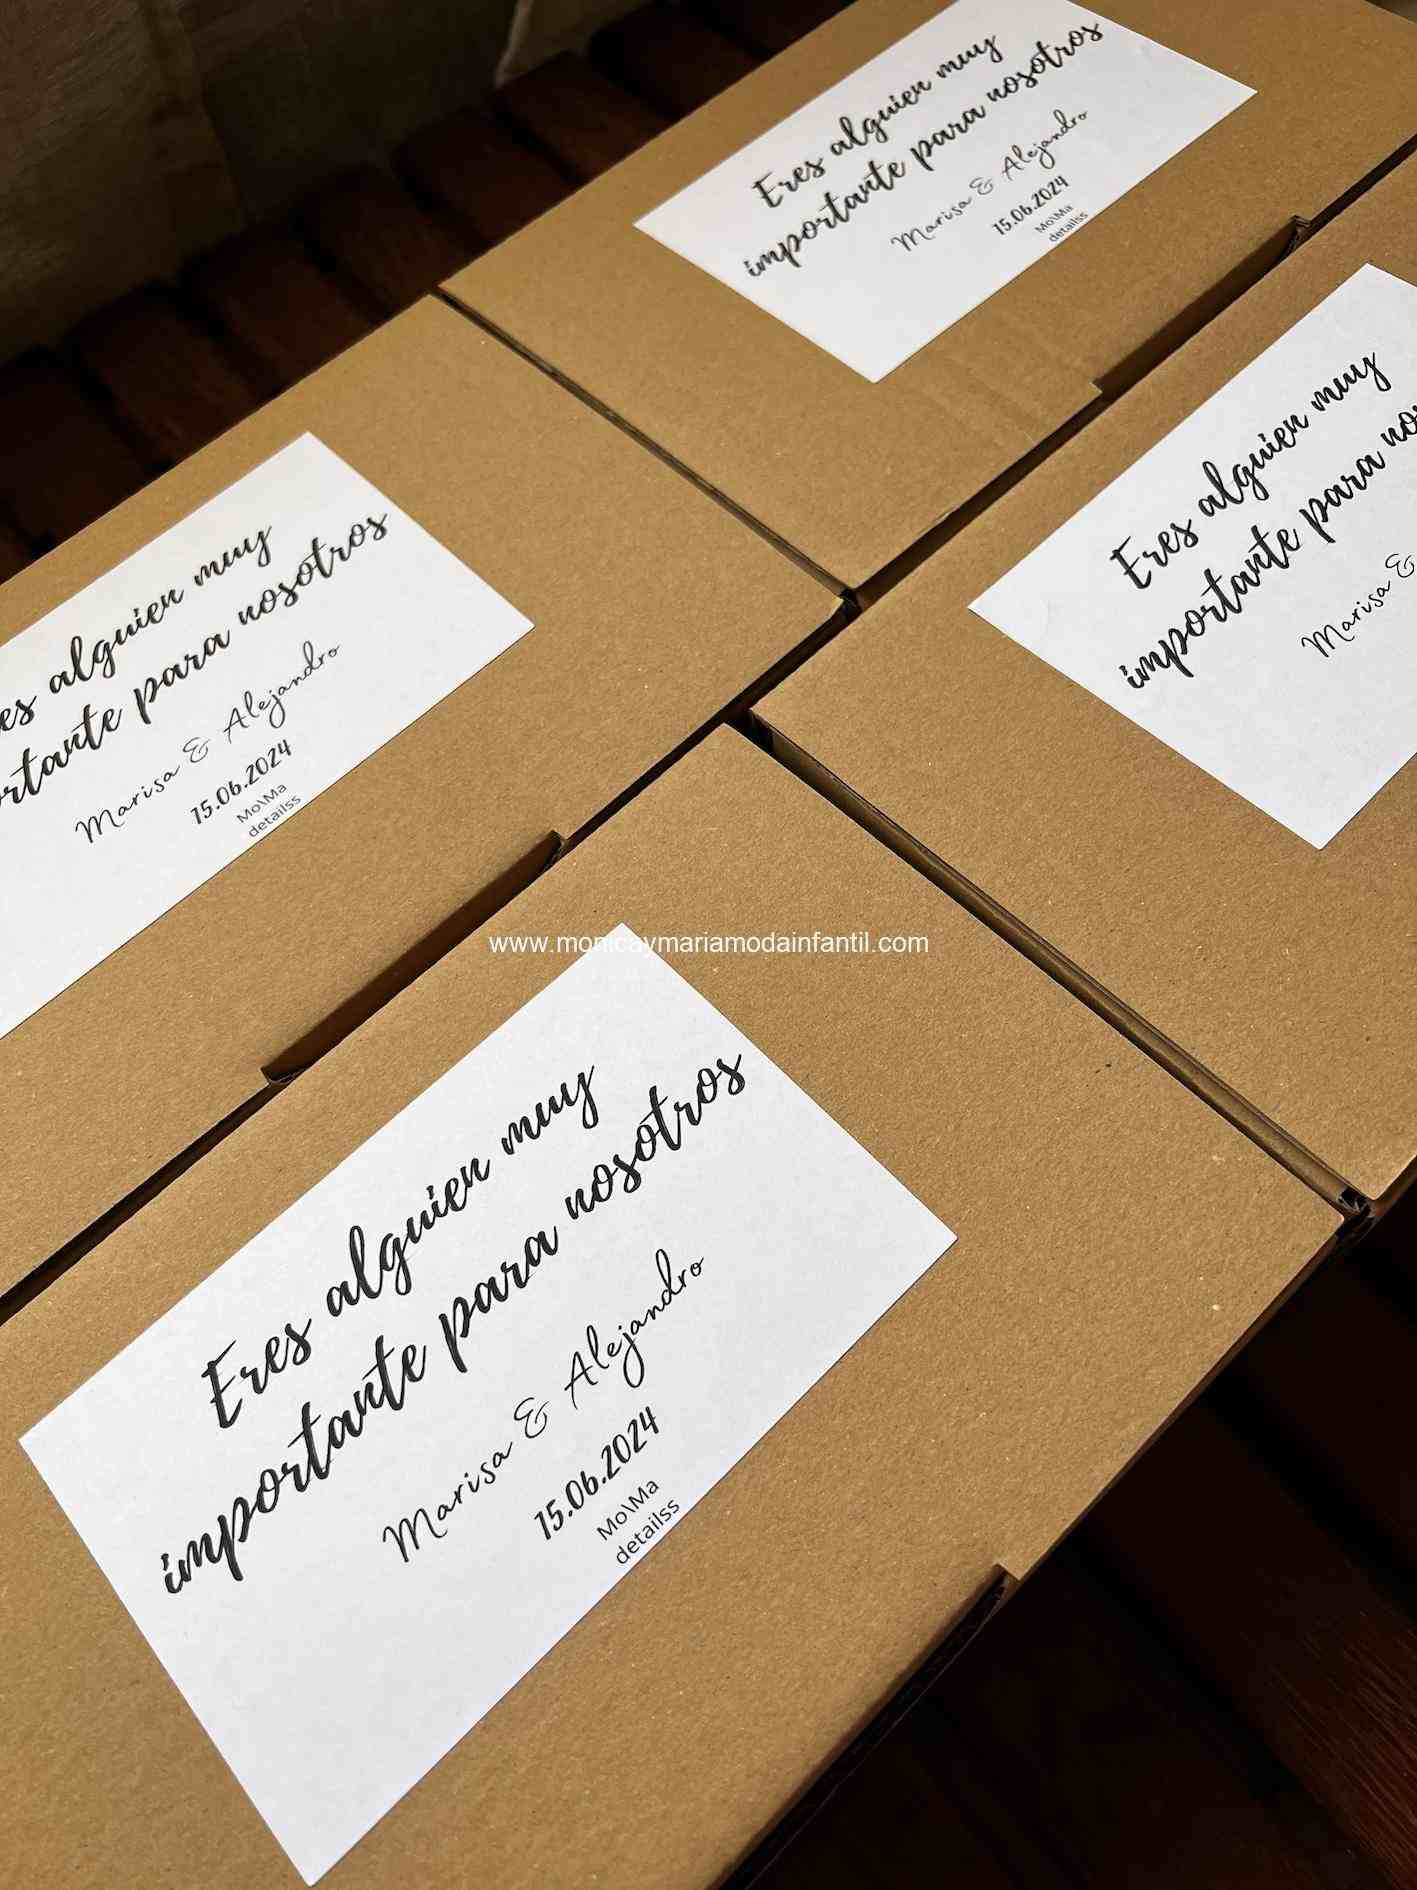 Eres alguien muy
importante para nosotros
Marisa & Alejandro
15.06.2024
Mo\Ma
detailss
alguien muy
para nosotros
Marisa & Alejandro
15.06.2024
Mo\Ma
detailss
Eres alguien muy
importante para
Marisa &
www.monicaymariamodainfantil.com
Eres alguien muy
importante para nosotros
Marisa & Alejandro
15.06.2024
Mo\Ma
detailss